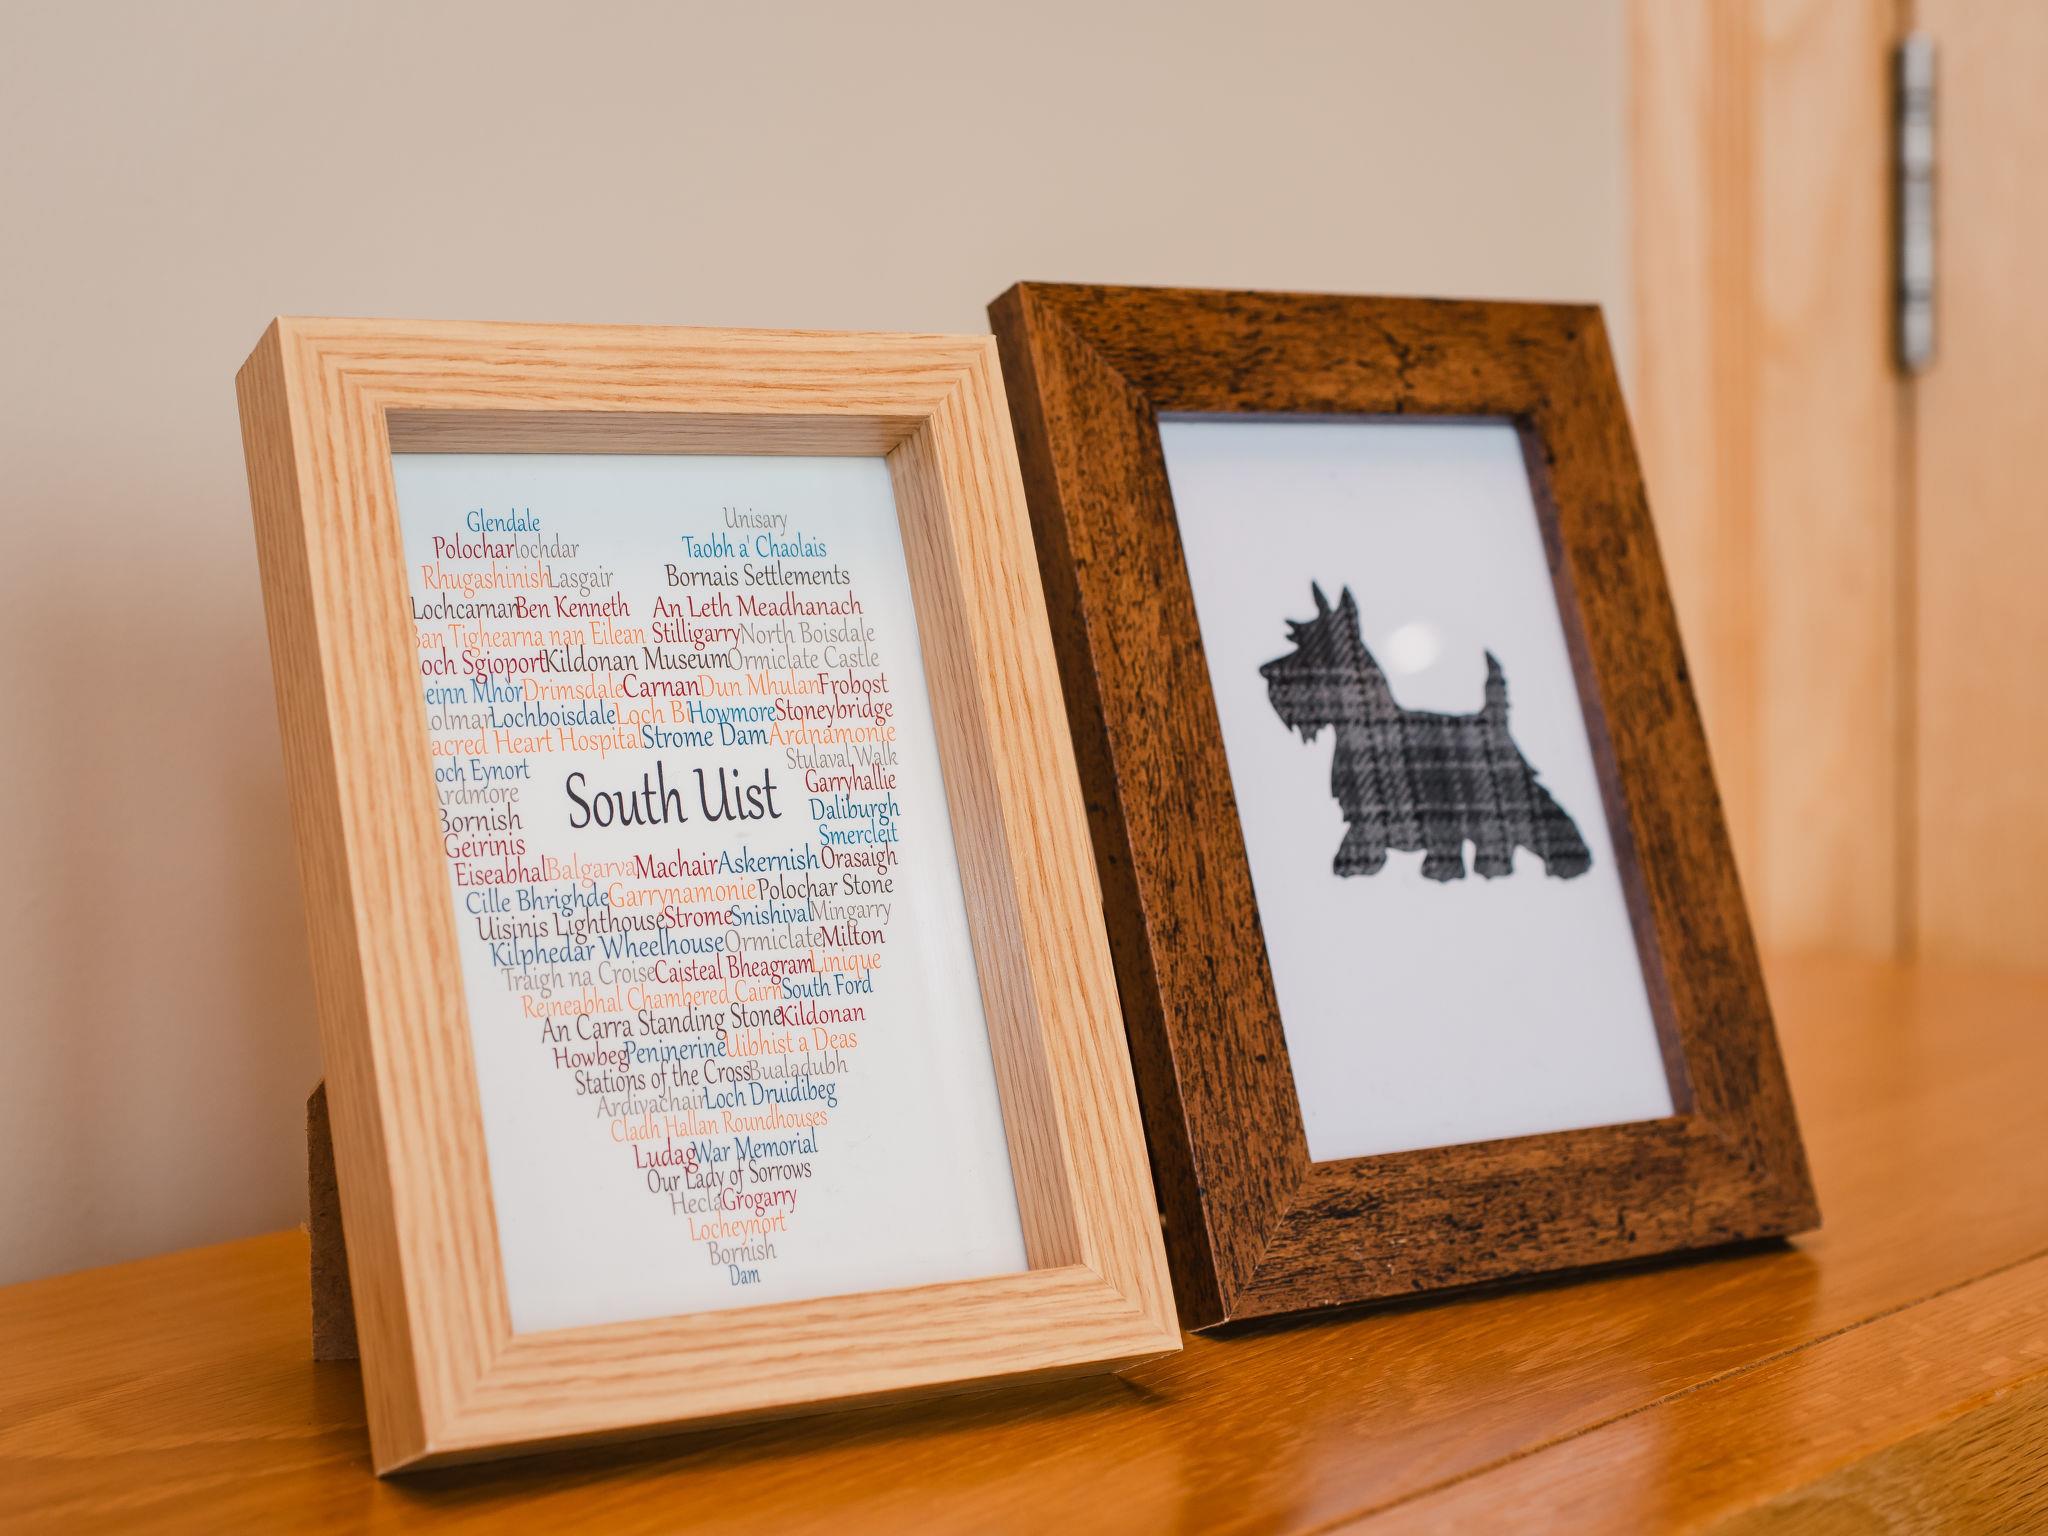 Glendale Unisary
Polochar lochdar Taobh a' Chaolais
Rhugashinish Lasgair Bornais Settlements
Lochcarnan Ben Kenneth An Leth Meadhanach
Ban Tighearna nan Eilean Stilligarry North Boisdale
och Sgioport Kildonan Museum Ormiclate Castle
einn Mhòr Drimsdale Carnan Dun Mhulan Frobost
olman Lochboisdale Loch Bi Howmore Stoneybridge
acred Heart Hospital Strome Dam Ardnamonie
Stulaval Walk
och Eynort Garryhallie
Ardmore
South Uist
Bornish Daliburgh
Geirinis Smercleit
Eiseabhal Balgarva Machair Askernish Orasaigh
Cille Bhrighde Garrynamonie Polochar Stone
Uisinis Lighthouse Strome Snishival Mingarry
Kilphedar Wheelhouse Ormiclate Milton
Traigh na Croise Caisteal Bheagram Linique
Reineabhal Chambered Cairn South Ford
An Carra Standing Stone Kildonan
Howbeg Peninerine Uibhist a Deas
Stations of the Cross Bualadubh
Ardivachair Loch Druidibeg
Cladh Hallan Roundhouses
Ludag War Memorial
Our Lady of Sorrows
Hecla Grogarry
Locheynort
Bornish
Dam